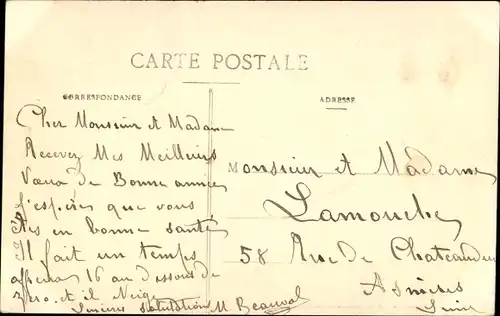 CARTE POSTALE
CORRESPONDANCE
ADRESSE
Cher Monsieur et Madame
Recevez Mes Meilleurs
Vœux de Bonne année
J'espères que vous
êtes en bonne santé
Il fait un temps
affreux 16 au dessous de
zéro et il Neige
Sincères salutations M. Beauval
Monsieur et Madame
Lamouche
58 Rue de Chateaudun
Asnières
Seine